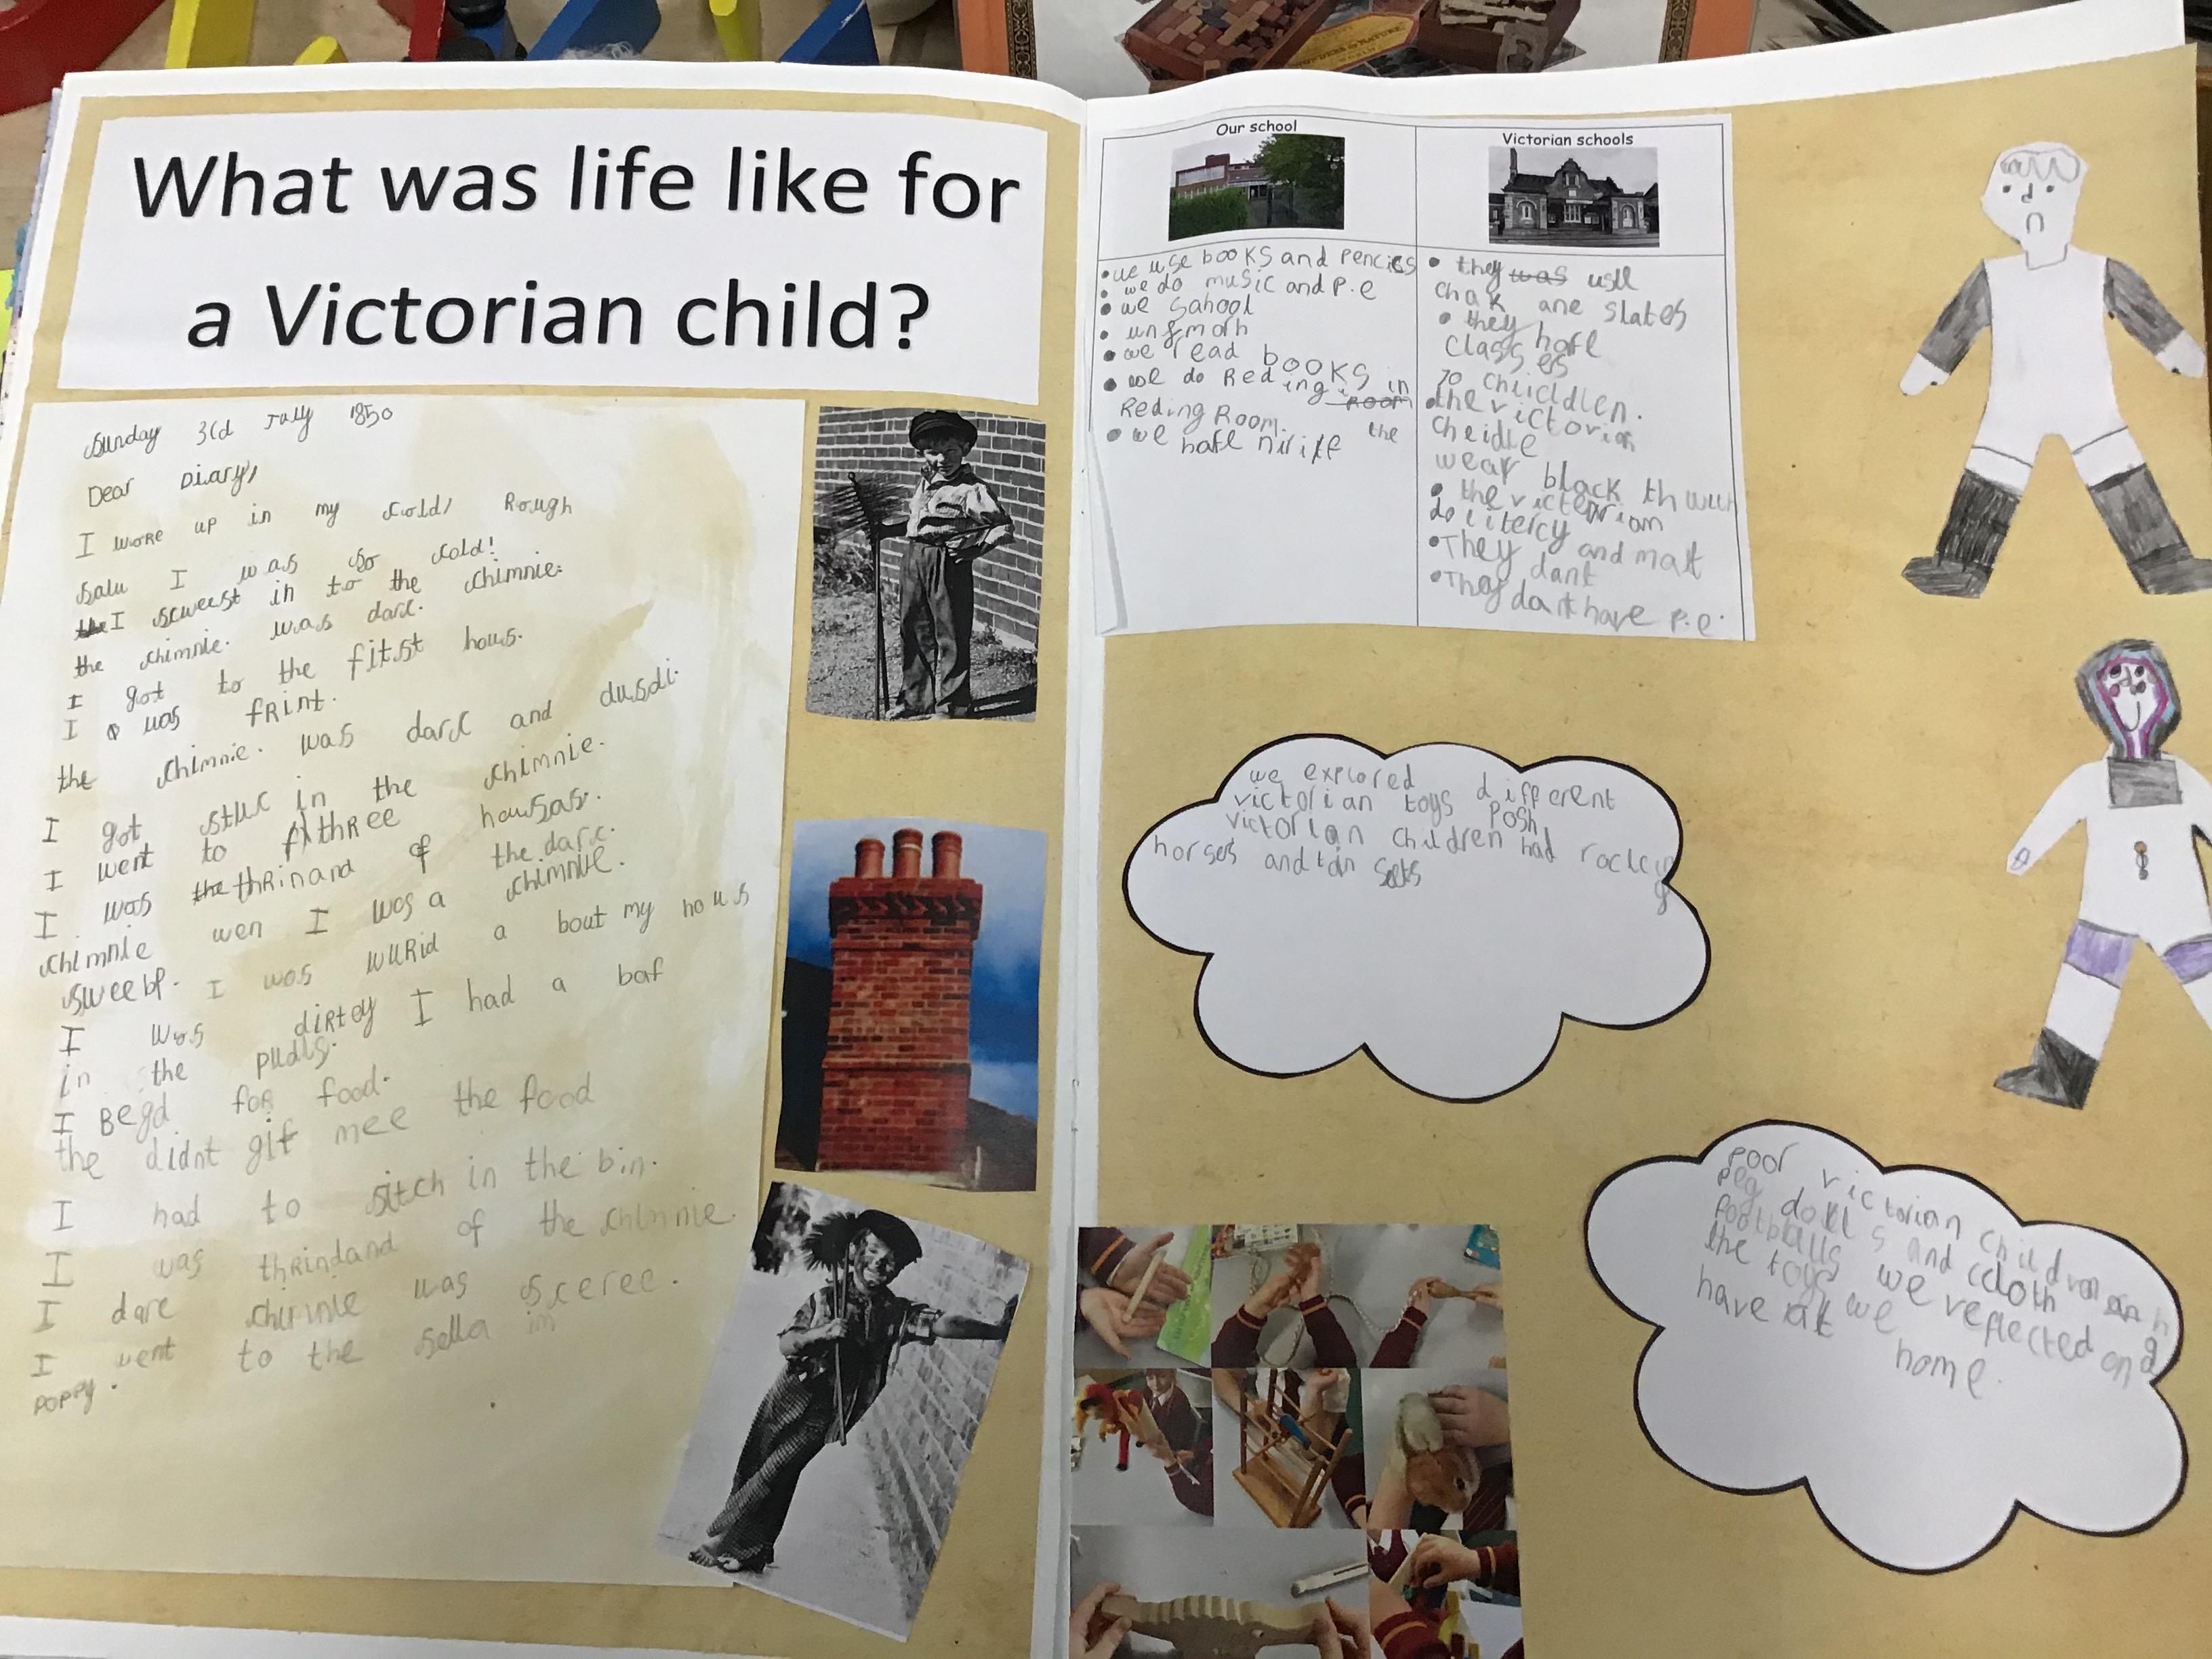 What was life like for
a Victorian child?
Sunday 3rd July 1850
Dear Diary,
I woke up in my cold, Rough
I was so cold!
I sweest in to the chimnie.
the chimnie. was darc.
I got to the fitst hous.
I was fRint.
the chimnie. was darc and dusdi.
I got stuc in the chimnie.
I went to thRee housas.
I was the thRinand of the darc.
chimnie wen I was a chimnie.
sweebp. I was wuRid a bout my hous
I was diRtey I had a baf
in the pudls.
I Begd foR food.
the didnt gif mee the food
I had to sitch in the bin.
I was thRindand of the chimnie.
I darc chimnie was sceree.
I went to the sella im
poppy.
Our school
we use books and pencils
we do music and P.e
we sahool
unfmorh
we read books
we do Reding in
Reding Room. the
we hafe
Victorian schools
they was use
chak ane slates
they hafe
classes
70 chuicldlen.
the victorian
cheidle
wear black
the victeriom
do litercy and mat
They dant
They dant have p.e.
we explored different
victorian toys posh
victorian children had rocking
horses and tin sets
poor victorian children
peg dolls and ccloth
footballs we reflected on
the toys we
have at home.